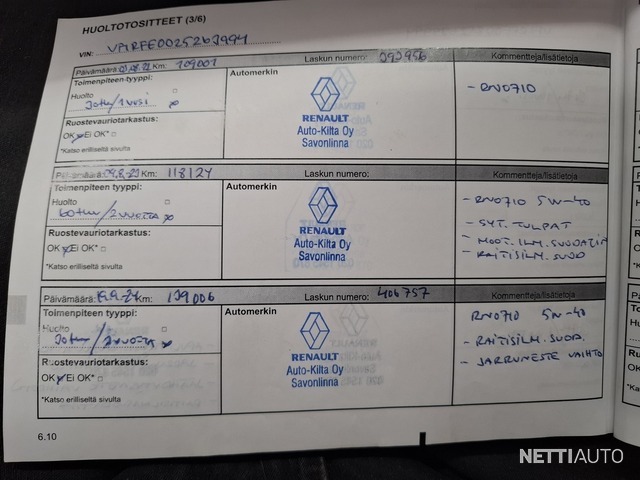 HUOLTOTOSITTEET (3/6)
VIN:
Päivämäärä: Km: 109001 Laskun numero: 392956 Kommentteja/lisätietoja
Toimenpiteen tyyppi: Automerkin
Huolto
- RN0710
RENAULT
Auto-Kilta Oy
Savonlinna
Ruostevauriotarkastus:
OK Ei OK*
*Katso erilliseltä sivulta
Päivämäärä: 09.8-23 Km: 118124 Laskun numero: Kommentteja/lisätietoja
Toimenpiteen tyyppi: Automerkin
Huolto
60tkm/2vuotta x
- RN0710 5W-40
- SYT. TULPAT
- MOOT.ILM.SUODATIN
- RAITISILM. SUOD
RENAULT
Auto-Kilta Oy
Savonlinna
Ruostevauriotarkastus:
OK Ei OK*
*Katso erilliseltä sivulta
Päivämäärä: Km: 139006 Laskun numero: 406757 Kommentteja/lisätietoja
Toimenpiteen tyyppi: Automerkin
Huolto
30tkm/2vuotta x
RN0710 5W-40
- RAITISILM. SUOD.
- JARRUNESTE VAIHTO
RENAULT
Auto-Kilta Oy
Savonlinna
Ruostevauriotarkastus:
OK Ei OK*
*Katso erilliseltä sivulta
6.10
NETTIAUTO